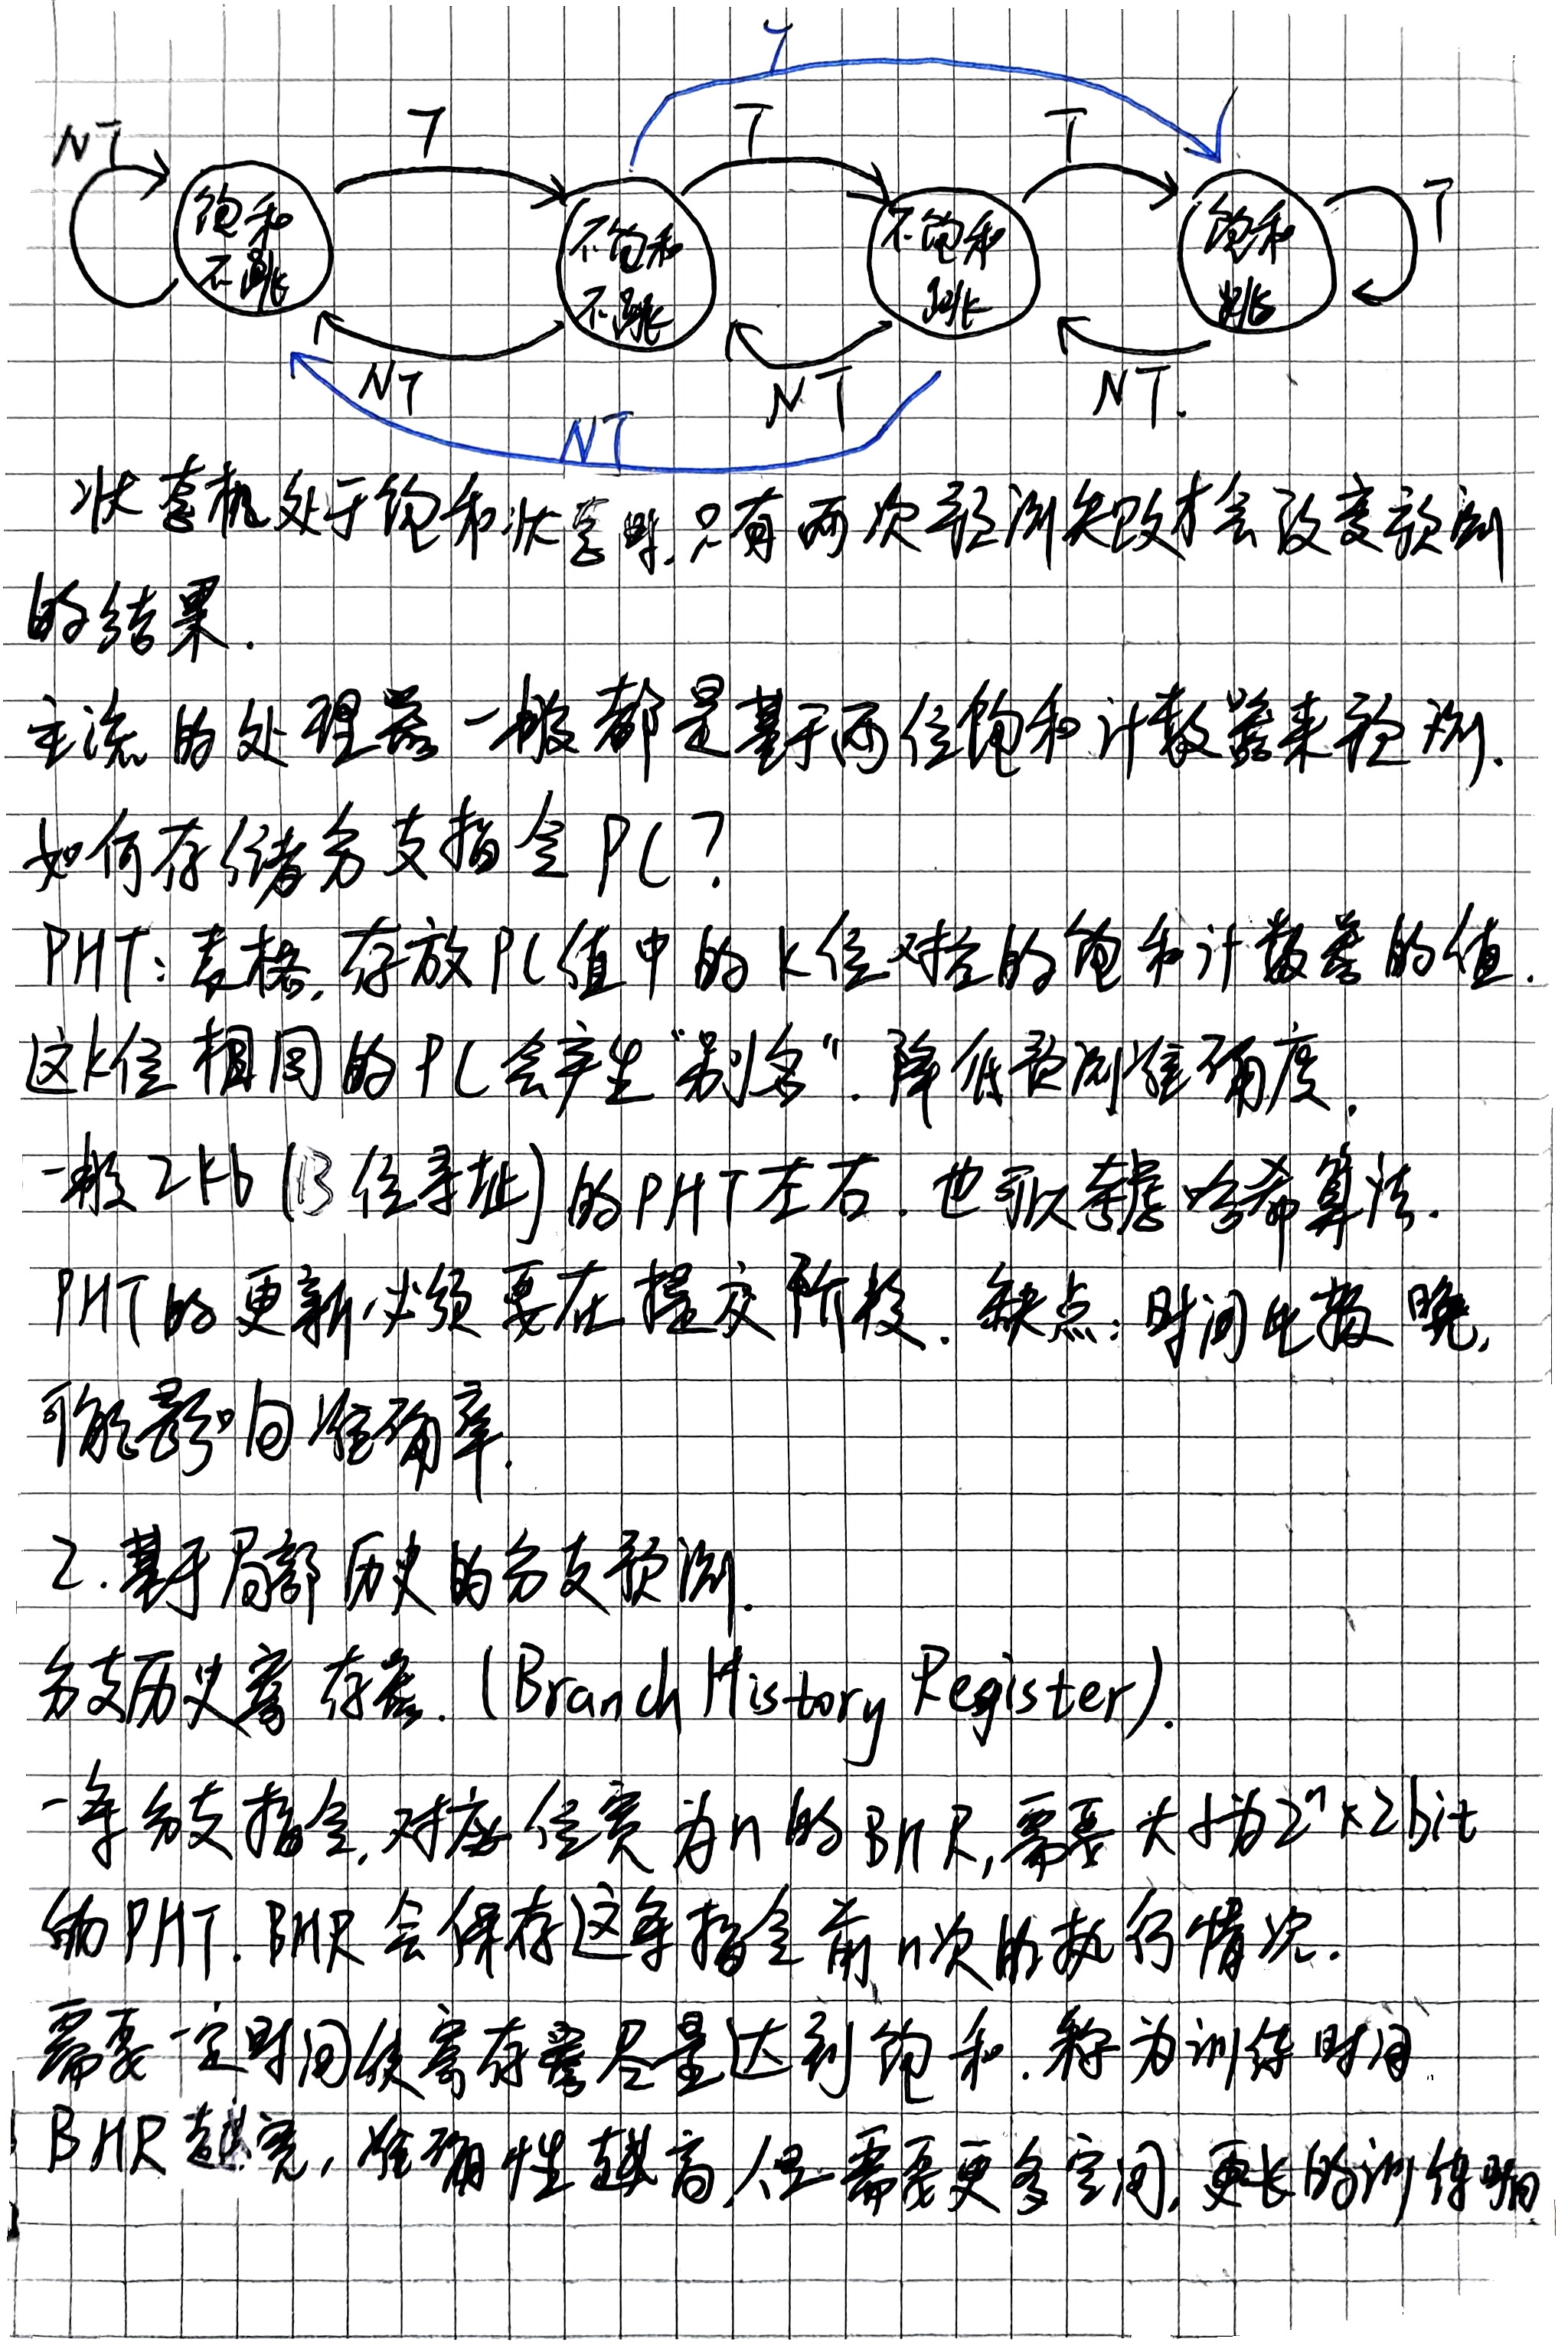 T
NT T T T
饱和 不饱和 不饱和 饱和 T
不跳 不跳 跳 跳
NT NT NT.
NT
状态机处于饱和状态时,只有两次预测失败才会改变预测
的结果.
主流的处理器一般都是基于两位饱和计数器来预测.
如何存储分支指令PC?
PHT:表格,存放PC值中的k位对应的饱和计数器的值.
这k位相同的PC会产生"别名".降低预测准确度.
一般2kb(13位寻址)的PHT左右.也可以考虑哈希算法.
PHT的更新必须要在提交阶段.缺点:时间比较晚,
可能影响准确率.
2.基于局部历史的分支预测.
分支历史寄存器.(Branch History Register).
一条分支指令,对应位宽为n的BHR,需要大小为2ⁿ×2bit
的PHT.BHR会保存这条指令前n次的执行情况.
需要一定时间使寄存器尽量达到饱和.称为训练时间.
BHR越宽,准确性越高,但需要更多空间,更长的训练时间